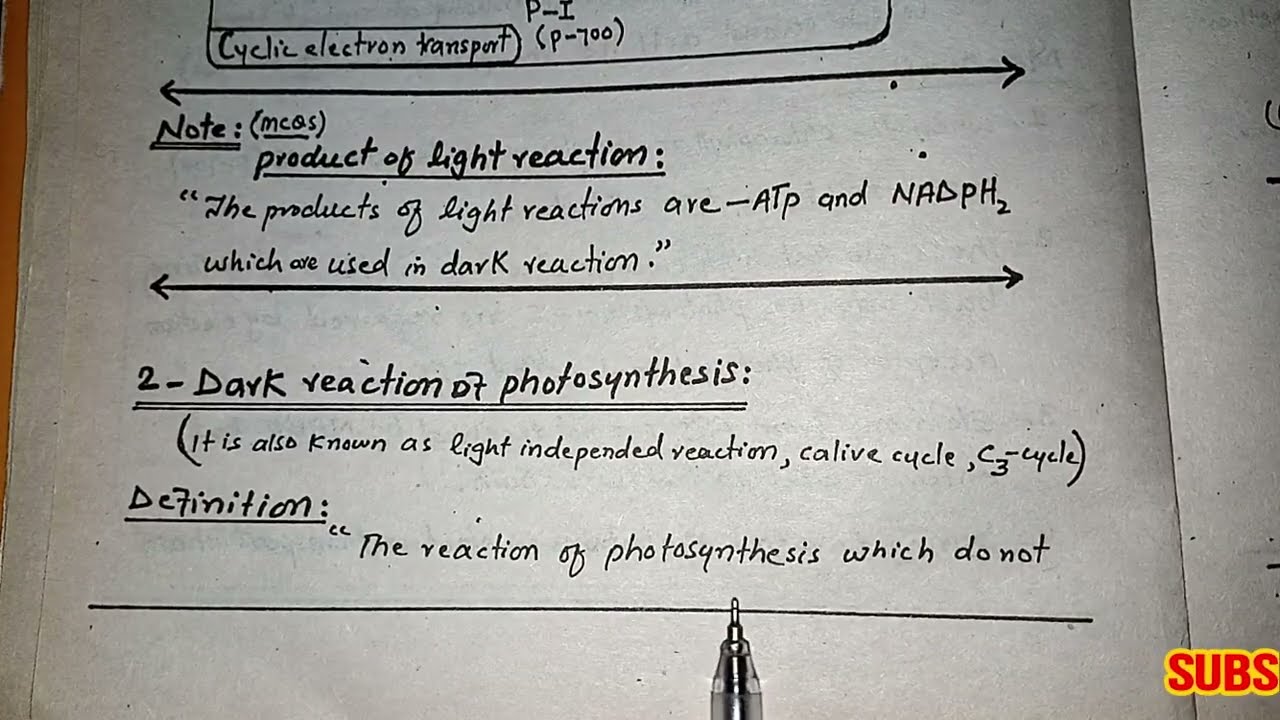 P-I
Cyclic electron transport) (P-700)
Note: (mcqs)
product of light reaction:
"The products of light reactions are - ATP and NADPH₂
which are used in dark reaction."
2- Dark reaction of photosynthesis:
(It is also known as light independed reaction, calive cycle, C₃-cycle)
Definition:
"The reaction of photosynthesis which do not
SUBS